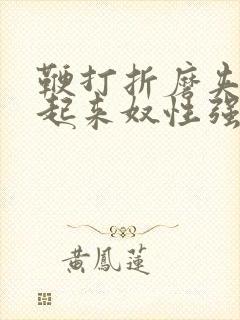 鞭打折磨夹
起来奴性强
黄鳳蓮